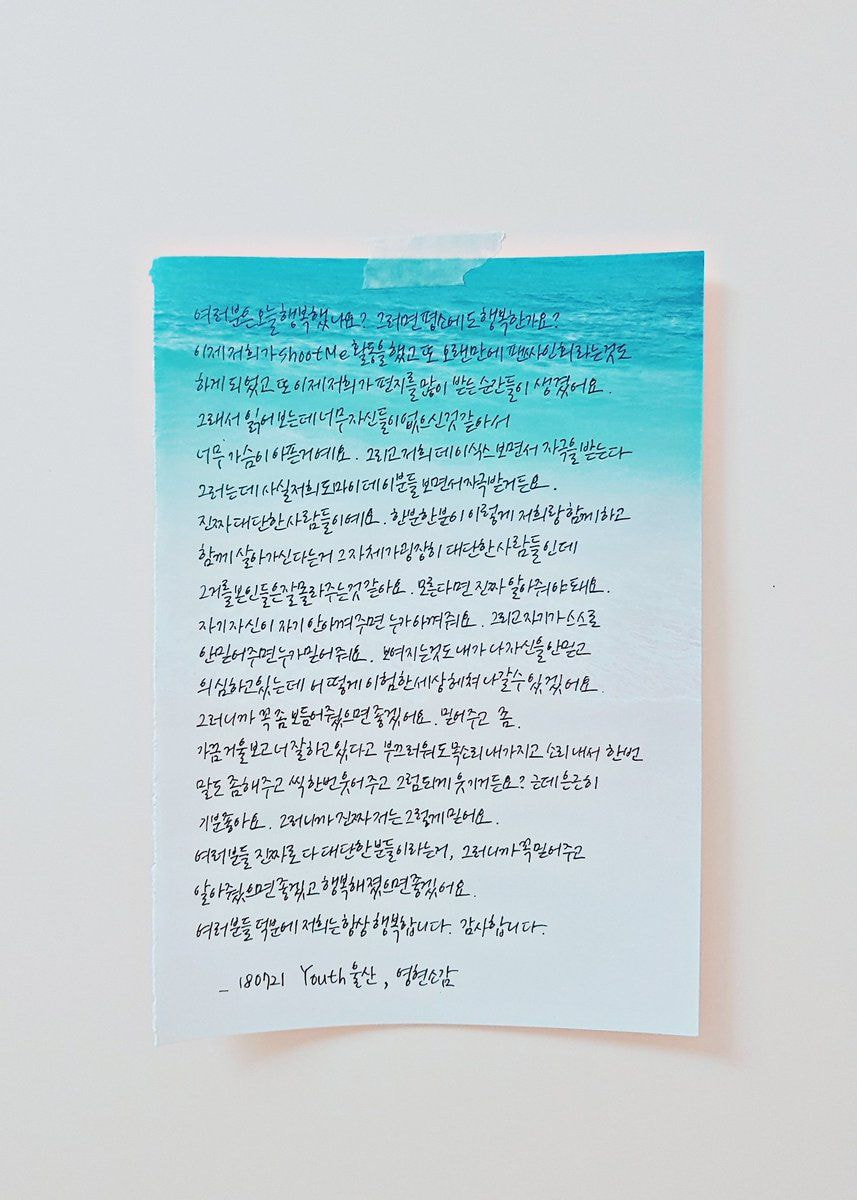 여러분은 오늘 행복했나요? 그러면 평소에도 행복한가요?
이제 저희가 Shoot Me 활동을 했고 또 오랜만에 팬싸인회라는것도
하게 되었고 또 이제 저희가 편지를 많이 받는 순간들이 생겼어요.
그래서 읽어보는데 너무 자신들이 없으신것 같아서
너무 가슴이 아픈거예요. 그리고 저희 데이식스 보면서 자극을 받는다
그러는데 사실 저희도 마이데이분들 보면서 자극받거든요.
진짜 대단한 사람들이예요. 한분한분이 이렇게 저희랑 함께하고
함께 살아가신다는거 그 자체가 굉장히 대단한 사람들인데
그거를 본인들은 잘 몰라주는것 같아요. 모른다면 진짜 알아줘야돼요.
자기자신이 자기 안아껴주면 누가 아껴줘요. 그리고 자기가 스스로
안믿어주면 누가 믿어줘요. 보여지는것도 내가 나 자신을 안믿고
의심하고있는데 어떻게 이 험한 세상 헤쳐나갈수 있겠어요.
그러니까 꼭 좀 보듬어줬으면 좋겠어요. 믿어주고 좀.
가끔 거울보고 너 잘하고있다고 부끄러워도 목소리 내가지고 소리내서 한번
말도 좀 해주고 씩 한번 웃어주고 그럼 되게 웃기거든요? 근데 은근히
기분좋아요. 그러니까 진짜 저는 그렇게 믿어요.
여러분들 진짜로 다 대단한 분들이라는거, 그러니까 꼭 믿어주고
알아줬으면 좋겠고 행복해졌으면 좋겠어요.
여러분들 덕분에 저희는 항상 행복합니다. 감사합니다.
_ 180721 Youth 울산, 영현소감